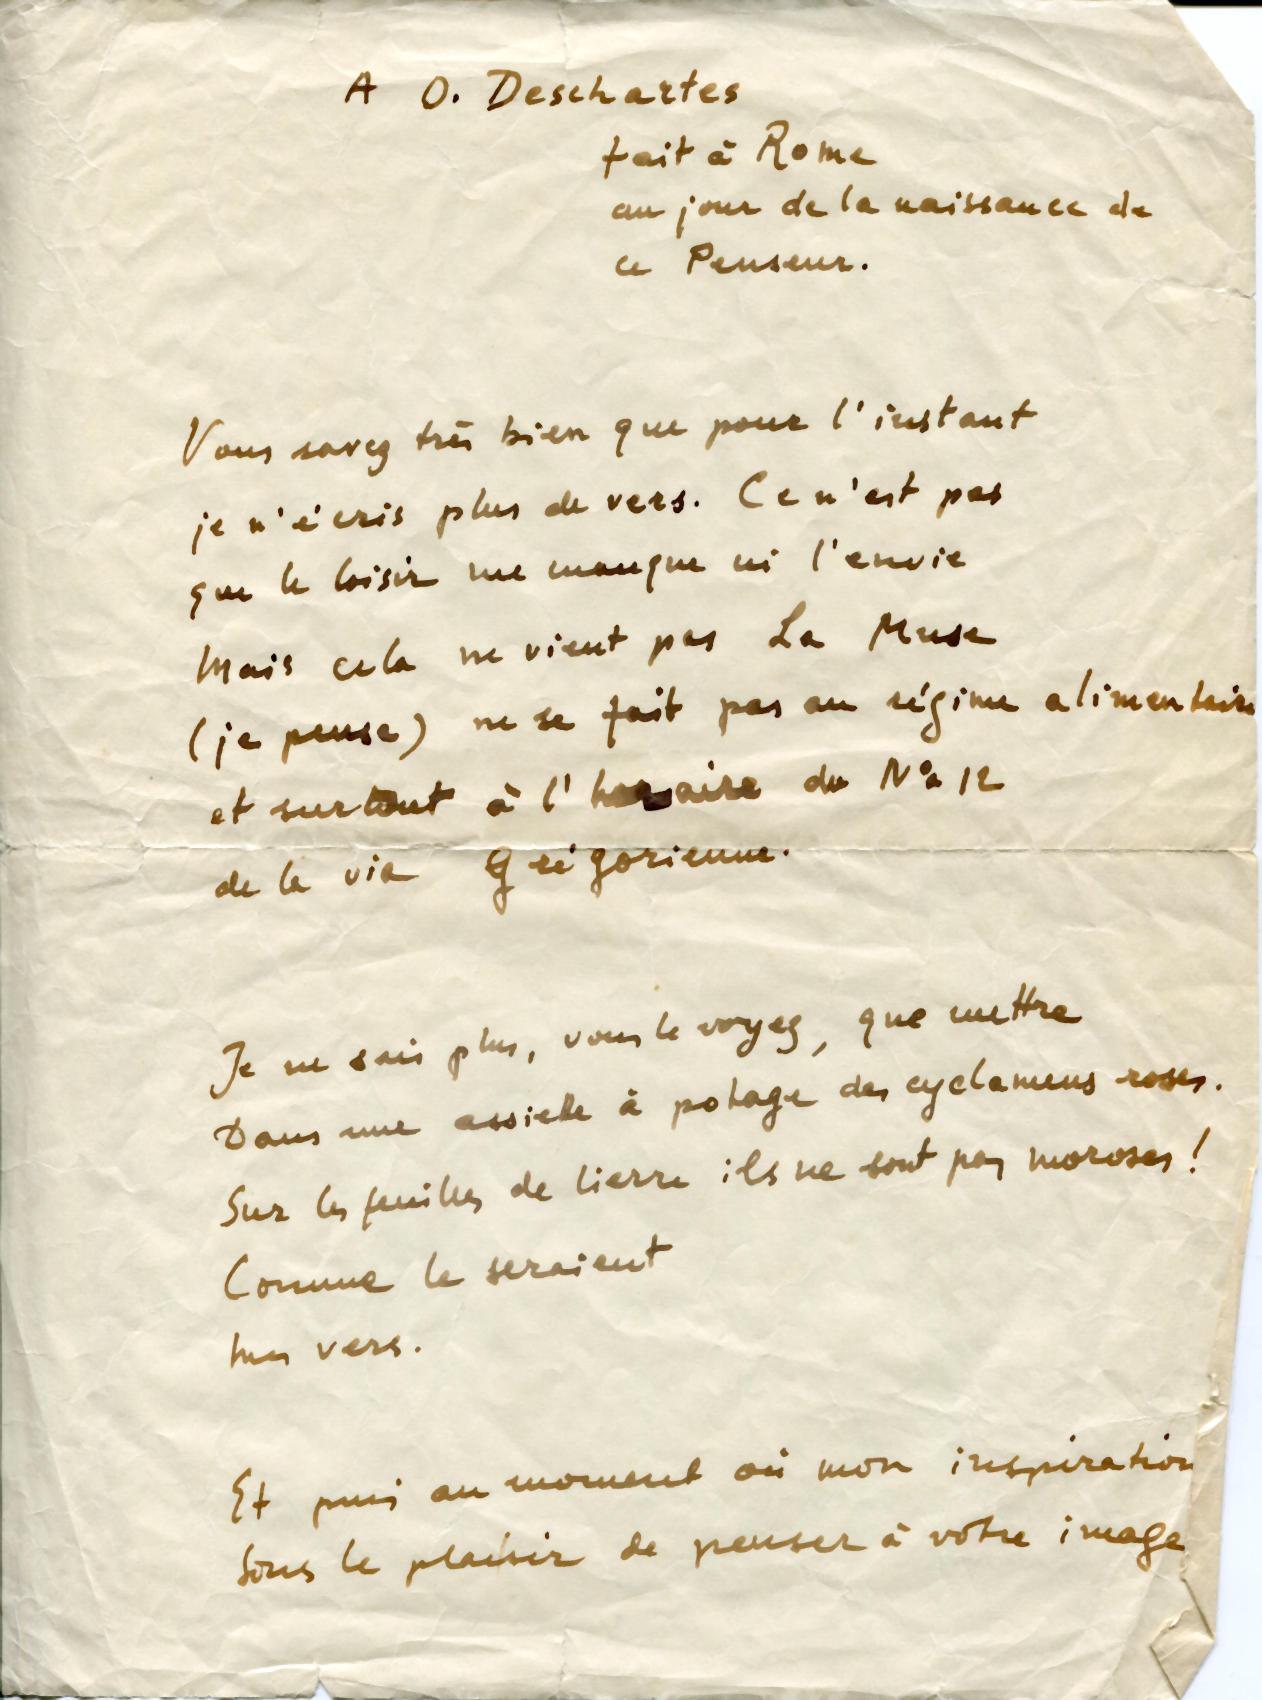 A O. Deschartes
fait à Rome
au jour de la naissance de
ce Penseur.
Vous savez très bien que pour l'instant
je n'écris plus de vers. Ce n'est pas
que le loisir me manque ni l'envie
Mais cela ne vient pas La Muse
(je pense) ne se fait pas au régime alimentaire
et surtout à l'horaire du N° 12
de la via Grégorienne.
Je ne sais plus, vous le voyez, que mettre
Dans une assiette à potage des cyclamens roses.
Sur les feuilles de lierre ils ne sont pas moroses!
Comme le seraient
mes vers.
Et puis au moment où mon inspiration
Sous le plaisir de penser à votre image